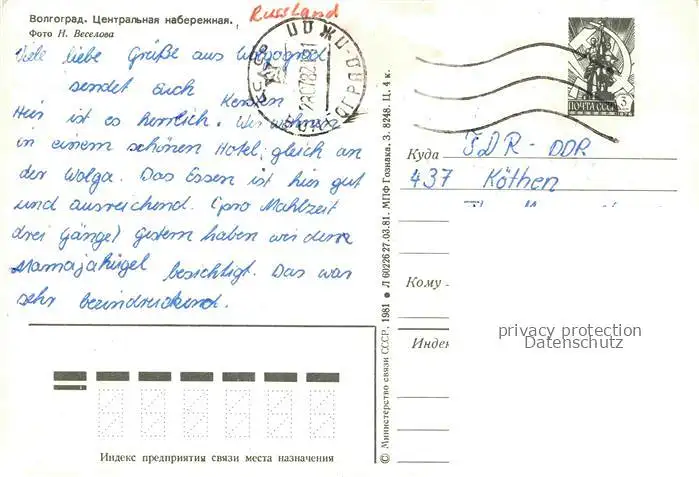 Волгоград. Центральная набережная.
Фото Н. Веселова
Russland
Viele liebe Grüße aus Wolgograd
sendet Euch
Hier ist es herrlich. Wir wohnen
in einem schönen Hotel, gleich an
der Wolga. Das Essen ist hier gut
und ausreichend. (pro Mahlzeit
drei Gänge) gestern haben wir den
Mamajahügel besichtigt. Das war
sehr beeindruckend.
Индекс предприятия связи места назначения
© Министерство связи СССР, 1981 ● Л 60226 27.03.81. МПФ Гознака. З. 8248. Ц. 4 к.
ПОЧТА СССР 3
Куда
DDR
437 Köthen
Кому
Индек
privacy protection
Datenschutz